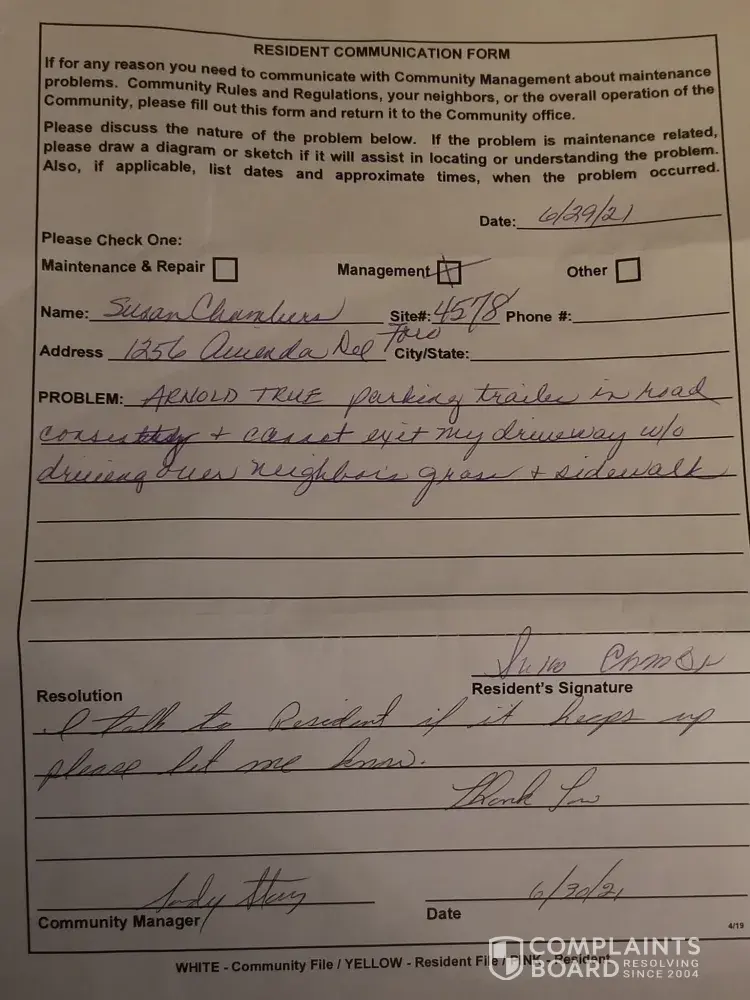 RESIDENT COMMUNICATION FORM
If for any reason you need to communicate with Community Management about maintenance
problems. Community Rules and Regulations, your neighbors, or the overall operation of the
Community, please fill out this form and return it to the Community office.
Please discuss the nature of the problem below. If the problem is maintenance related,
please draw a diagram or sketch if it will assist in locating or understanding the problem.
Also, if applicable, list dates and approximate times, when the problem occurred.
Date: 6/29/21
Please Check One:
Maintenance & Repair Management Other
Name: Susan Chambers Site#: 4578 Phone #:
Address 1256 Avienda Del Toro City/State:
PROBLEM: ARNOLD TRUE parking trailer in road
consistently + cannot exit my driveway w/o
driving over neighbors grass + sidewalk
Resident's Signature
Resolution
I talk to Resident if it keeps up
please let me know.
Thank You
6/30/21
Community Manager Date
4/19
WHITE - Community File / YELLOW - Resident File / PINK - Resident
COMPLAINTS
BOARD RESOLVING
SINCE 2004